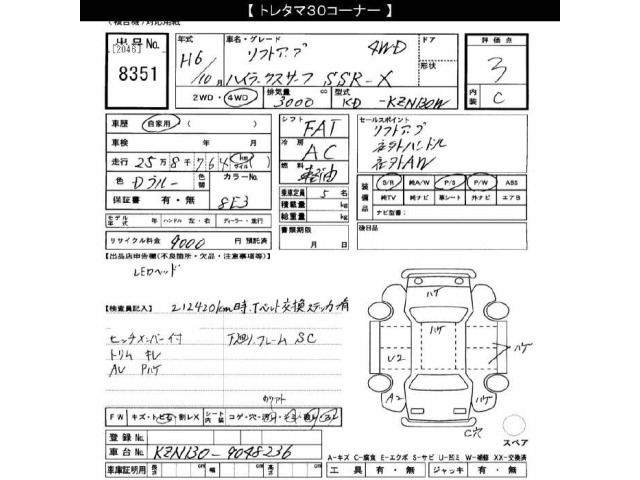 【 トレタマ30コーナー 】
（複合機）対応用紙
出品号No.
[2046]
8351
年式 H6/10月
車名・グレード リフトアップ 4WD
ハイラックスサーフ SSR-X
ドア
形状
評価点 3
内装 C
2WD・4WD
排気量 3000 cc
型式 KD-KZN130W
車歴 自家用（ ）
車検 年 月
走行 25万8千764 km マイル
色 Dブルー
色替
カラーNo. 8E3
保証書 有・無
シフト FAT
冷房 AC
燃料 軽油
乗車定員 5 名
積載量 kg
総重量 kg
セールスポイント
リフトアップ
社外ハンドル
社外AW
装備品
S/R 純A/W P/S P/W ABS
純TV 純ナビ 革シート 外ナビ エアB
ナビ型番：
モデル年式 年 ハンドル 左・右 ディーラー・並行
リサイクル料金 9000 円 預託済
書類期限 月 日
後日品
【出品店申告欄（不良箇所・欠品・注意事項等）】
LEDヘッド
【検査員記入】 212420km時、Tベルト交換ステッカ有
ヒッチメンバー付 下廻り、フレーム SC
トリム キレ
AW Pハゲ
ハゲ
ハゲ
U2
ハゲ
A2
ハゲ
C穴
スペア
FW キズ・トビ石・割レX
シート内装 コゲ・穴
登録No.
車台No. KZN130-9048236
車庫証明用 長さ cm 幅 cm 高さ cm
A-キズ C-腐食 E-エクボ S-サビ U-凹ミ W-補修 XX-交換済
工具 有・無 ジャッキ 有・無